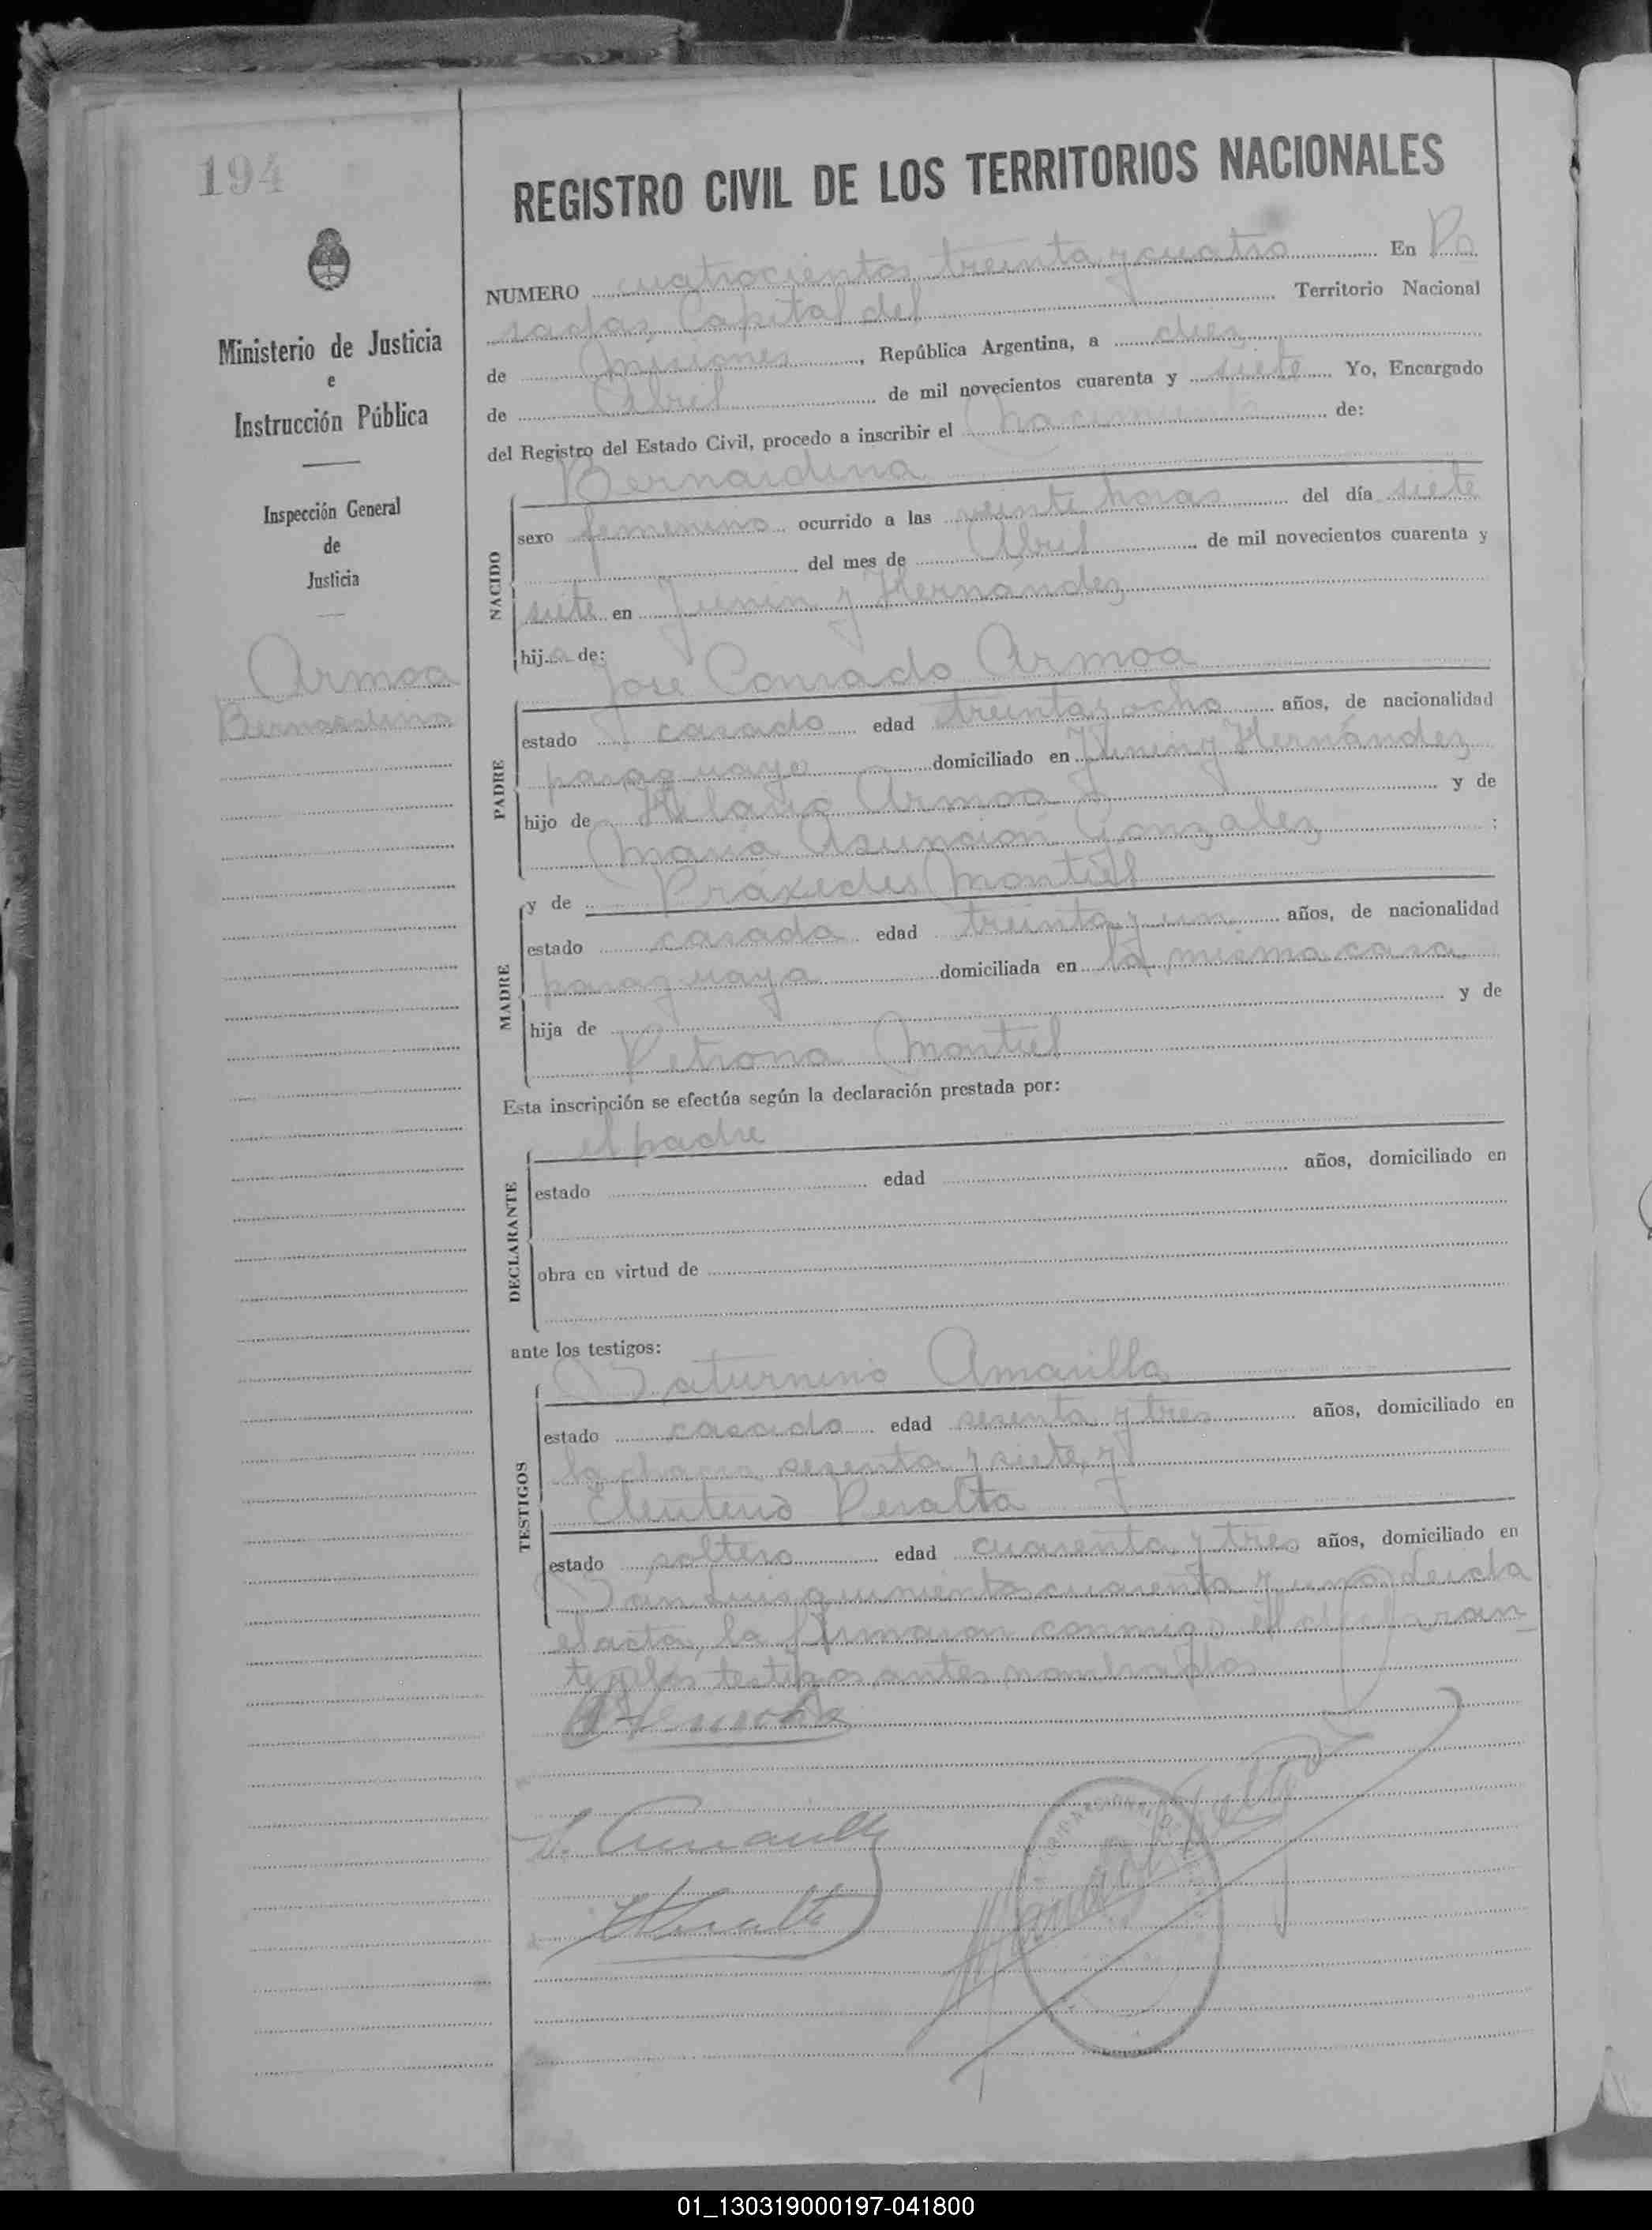 194
Ministerio de Justicia
e
Instrucción Pública
Inspección General
de
Justicia
Armoa
Bernardina
REGISTRO CIVIL DE LOS TERRITORIOS NACIONALES
NUMERO cuatrocientos treinta y cuatro En Po
sadas, Capital del Territorio Nacional
de Misiones, República Argentina, a diez
de Abril de mil novecientos cuarenta y siete Yo, Encargado
del Registro del Estado Civil, procedo a inscribir el nacimiento de:
Bernardina
NACIDO
sexo femenino ocurrido a las veinte horas del día siete
del mes de Abril de mil novecientos cuarenta y
siete en Junin y Hernández
hija de:
José Conrado Armoa
PADRE
estado casado edad treinta y ocho años, de nacionalidad
paraguayo domiciliado en Junin y Hernández
hijo de Armoa y de
Maria Asunción Gonzalez ;
MADRE
y de Práxedes Montiel
estado casada edad treinta y un años, de nacionalidad
paraguaya domiciliada en la misma casa
hija de y de
Petrona Montiel
Esta inscripción se efectúa según la declaración prestada por:
el padre
DECLARANTE
estado edad años, domiciliado en
obra en virtud de
ante los testigos:
Saturnino Amarilla
TESTIGOS
estado casado edad sesenta y tres años, domiciliado en
la chacra sesenta y siete, y
Eleuterio Peralta
estado soltero edad cuarenta y tres años, domiciliado en
San Luis quinientos cuarenta y uno. Leida
el acta, la firmaron conmigo el declaran-
te y los testigos antes nombrados
S. Amarilla
Peralta
01_130319000197-041800